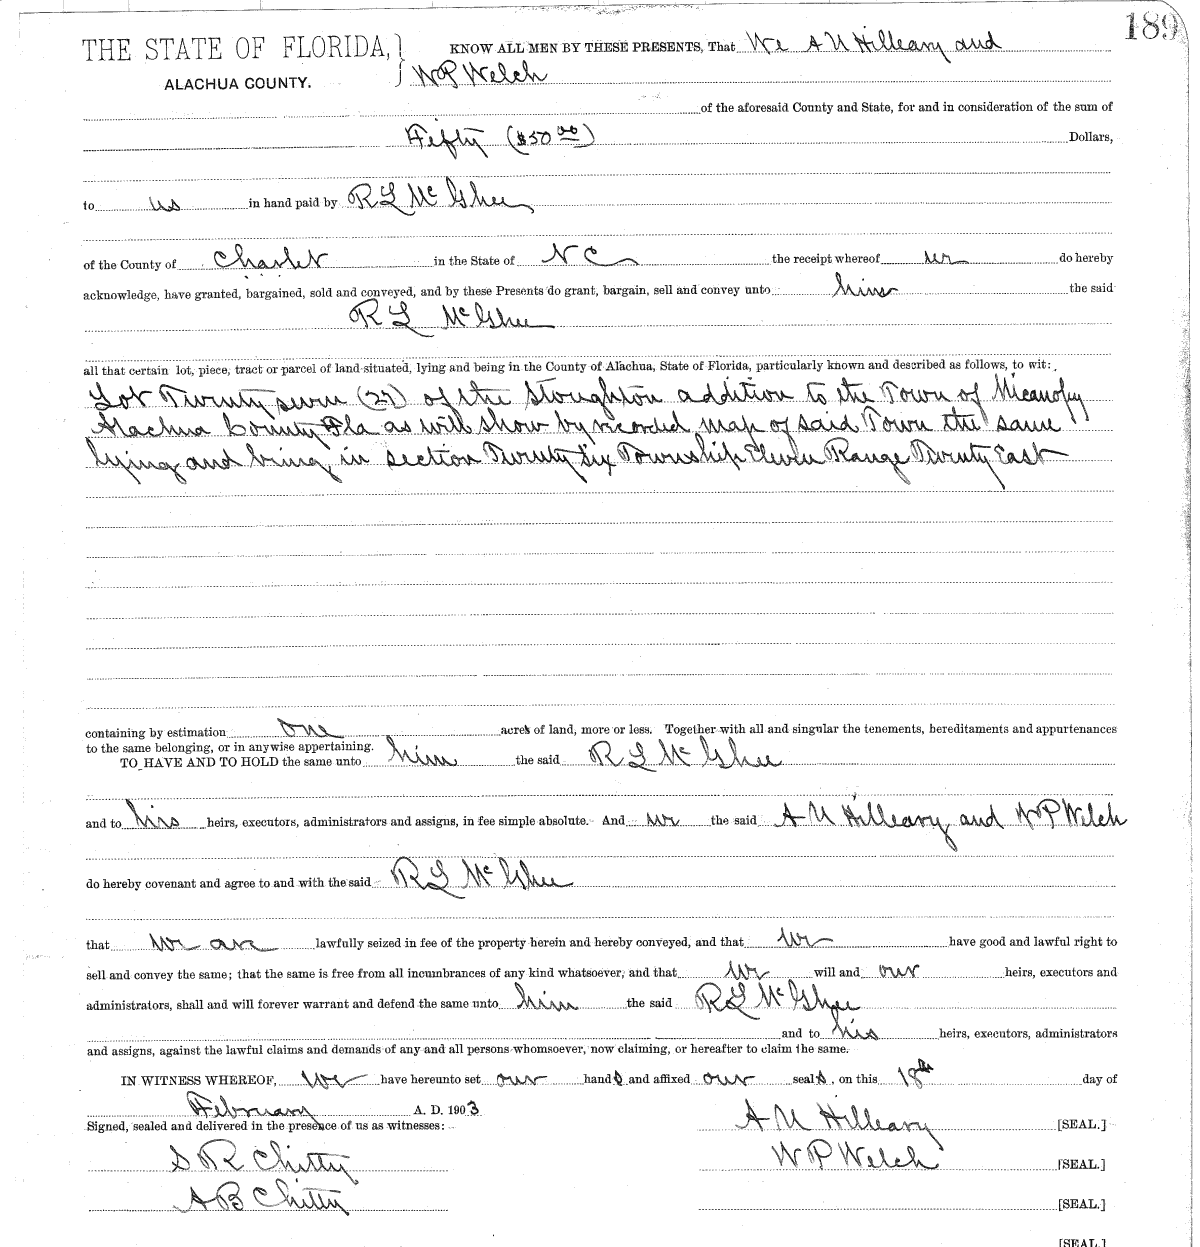 189
THE STATE OF FLORIDA, KNOW ALL MEN BY THESE PRESENTS, That We A M Hilleary and
ALACHUA COUNTY. W P Welch
of the aforesaid County and State, for and in consideration of the sum of
Fifty ($50 00) Dollars,
to us in hand paid by R L McGhee
of the County of in the State of N C the receipt whereof we do hereby
acknowledge, have granted, bargained, sold and conveyed, and by these Presents do grant, bargain, sell and convey unto him the said
R L McGhee
all that certain lot, piece, tract or parcel of land situated, lying and being in the County of Alachua, State of Florida, particularly known and described as follows, to wit:
Lot Twenty seven (27) of the Stoughton addition to the Town of Micanopy
Alachua County Fla as will show by recorded map of said Town the same
lying and being in section Twenty Six Township Eleven Range Twenty East
containing by estimation one acres of land, more or less. Together with all and singular the tenements, hereditaments and appurtenances
to the same belonging, or in anywise appertaining.
TO HAVE AND TO HOLD the same unto him the said R L McGhee
and to his heirs, executors, administrators and assigns, in fee simple absolute. And we the said A M Hilleary and W P Welch
do hereby covenant and agree to and with the said R L McGhee
that we are lawfully seized in fee of the property herein and hereby conveyed, and that we have good and lawful right to
sell and convey the same; that the same is free from all incumbrances of any kind whatsoever, and that we will and our heirs, executors and
administrators, shall and will forever warrant and defend the same unto him the said R L McGhee
and to his heirs, executors, administrators
and assigns, against the lawful claims and demands of any and all persons whomsoever, now claiming, or hereafter to claim the same.
IN WITNESS WHEREOF, We have hereunto set our hands and affixed our seals, on this 18th day of
February A. D. 1903
Signed, sealed and delivered in the presence of us as witnesses: A M Hilleary [SEAL.]
S R Chitty W P Welch [SEAL.]
A B Chitty [SEAL.]
[SEAL.]